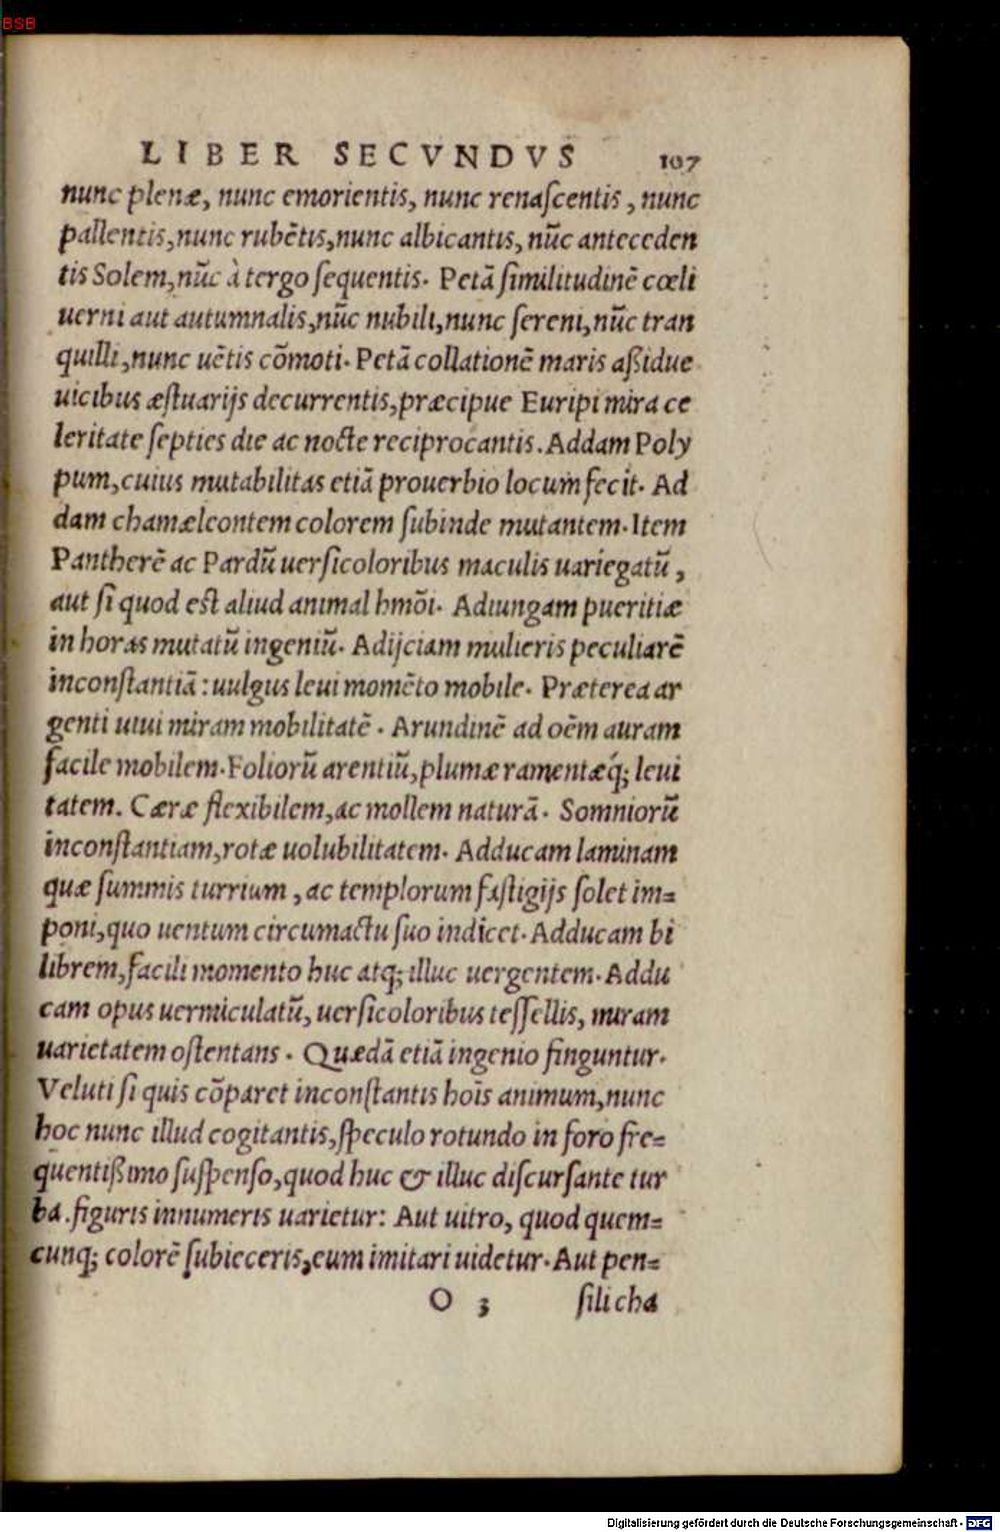 BSB
LIBER SECVNDVS 107
nunc plenæ, nunc emorientis, nunc renaſcentis, nunc
pallentis, nunc rubẽtis, nunc albicantis, nũc anteceden
tis Solem, nũc à tergo ſequentis. Petã ſimilitudinẽ cœli
uerni aut autumnalis, nũc nubili, nunc ſereni, nũc tran
quilli, nunc uẽtis cõmoti. Petã collationẽ maris aßidue
uicibus æſtuarijs decurrentis, præcipue Euripi mira ce
leritate ſepties die ac nocte reciprocantis. Addam Poly
pum, cuius mutabilitas etiã prouerbio locum fecit. Ad
dam chamæleontem colorem ſubinde mutantem. Item
Pantherẽ ac Pardũ uerſicoloribus maculis uariegatũ,
aut ſi quod eſt aliud animal hmõi. Adiungam pueritiæ
in horas mutatũ ingeniũ. Adijciam mulieris peculiarẽ
inconſtantiã: uulgus leui momẽto mobile. Præterea ar
genti uiui miram mobilitatẽ. Arundinẽ ad oẽm auram
facile mobilem. Foliorũ arentiũ, plumæ ramentæq́; leui
tatem. Cæræ flexibilem, ac mollem naturã. Somniorũ
inconſtantiam, rotæ uolubilitatem. Adducam laminam
quæ ſummis turrium, ac templorum faſtigijs ſolet im=
poni, quo uentum circumactu ſuo indicet. Adducam bi
librem, facili momento huc atq; illuc uergentem. Addu
cam opus uermiculatũ, uerſicoloribus teſſellis, miram
uarietatem oſtentans. Quædã etiã ingenio finguntur.
Veluti ſi quis cõparet inconſtantis hoĩs animum, nunc
hoc nunc illud cogitantis, ſpeculo rotundo in foro fre=
quentißimo ſuſpenſo, quod huc & illuc diſcurſante tur
ba. figuris innumeris uarietur: Aut uitro, quod quem=
cunq; colorẽ ſubieceris, eum imitari uidetur. Aut pen=
O 3 ſili cha
Digitalisierung gefördert durch die Deutsche Forschungsgemeinschaft - DFG